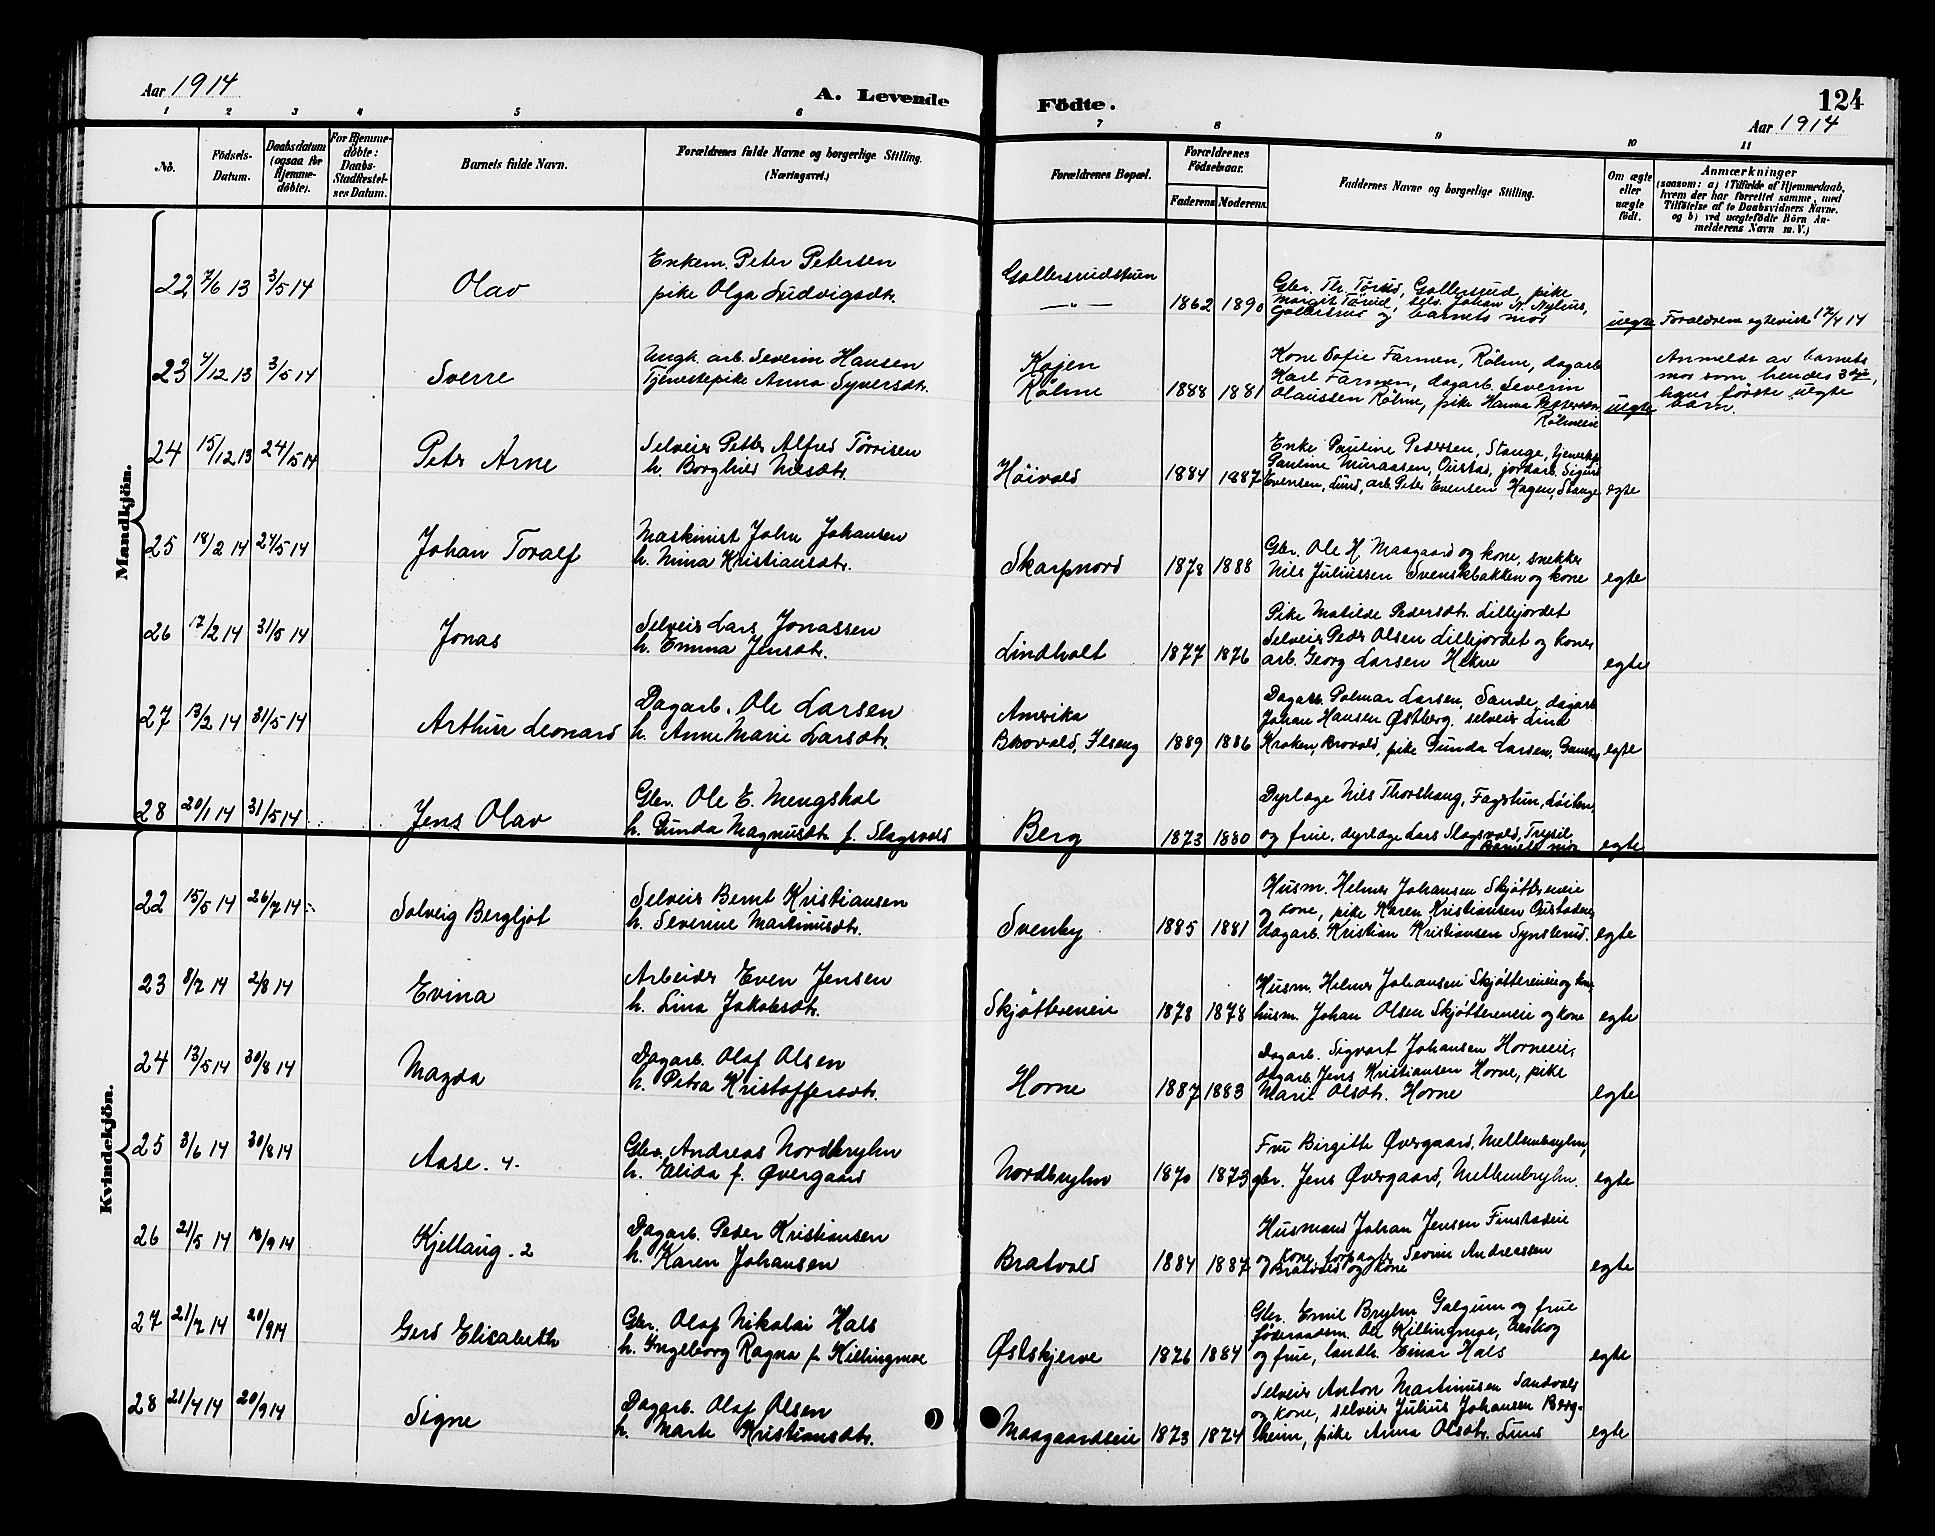 Aar 1914
A. Levende Födte.
124
Aar 1914
1 2 3 4 5 6 7 8 9 10 11
No.
Födsels-Datum.
Daabsdatum (ogsaa for Hjemme-döbte).
For Hjemme-döbte: Daabs-Stadfæstel-ses Datum.
Barnets fulde Navn.
Forældrenes fulde Navne og borgerlige Stilling. (Næringsvei.)
Forældrenes Bopæl.
Forældrenes Födselsaar.
Faderens Moderens
Faddernes Navne og borgerlige Stilling.
Om ægte eller uægte födt.
Anmærkninger
(saasom: a) i Tilfælde af Hjemmedaab,
hvem der har forrettet samme, med
Tilföielse af to Daabsvidners Navne,
og b) ved uægtefödte Börn An-
melderens Navn m. V.)
Mandkjön.
22 7/6 13 3/5 14 Olav
Enkem. Peter Petersen
pike Olga Ludvigsdtr.
Gollersrudstuen
— " — 1862 1890
Gbr. Th. Tørud, Gollersrud, pike
Margit Tørud, selv. Johan N. Nylius,
Gollersrud og barnets mor
uegte Forældrene egteviet 17/4 14
23 7/12 13 3/5 14 Sverre
Ungk. arb. Severin Hansen
Tjenestepike Anna Syversdtr.
Kojen
Rølme 1888 1881
Kone Sofie Farmen, Rølme, dagarb.
Karl Farmen, dagarb. Severin
Olaussen Rølme, pike Hanna Pettersen
Rølmeeie
uegte
Anmeldt av barnets
mor som hendes 3dje,
hans første uegte
barn.
24 15/12 13 24/5 14 Peter Arne
Selveier Petter Alfred Torvisen
h. Borghild Nilsdtr.
Høivold 1884 1887
Enke Pauline Pedersen, Stange, tjenestep.
Pauline Muraasen, Oustad, jordarb. Sigurd
Evensen, Lund, arb. Peter Evensen Hagen, Stange
egte
25 18/2 14 24/5 14 Johan Toralf
Maskinist John Johansen
h. Nina Kristiansdtr.
Skarpnord 1878 1888
Gbr. Ole H. Maagaard og kone, snekker
Nils Juliussen Svenskbakken og kone
egte
26 17/2 14 31/5 14 Jonas
Selveier Lars Jonassen
h. Emma Jensdtr.
Lindholt 1877 1876
Pike Matilde Pedersdtr. Lillejordet
Selveier Peder Olsen Lillejordet og kone,
arb. Georg Larsen Hekne
egte
27 13/2 14 31/5 14 Arthur Leonard
Dagarb. Ole Larsen
h. Anne Marie Larsdtr.
Amerika
Brovold, Ilseng 1889 1886
Dagarb. Palmar Larsen, Sande, dagarb
Johan Hansen Østberg, selveier Lina
Kroken, Brovold, pike Gunda Larsen,
egte
28 20/1 14 31/5 14 Jens Olav
Gbr. Ole E. Mengshol
h. Gunda Magnusdtr. f. Slagsvold
Berg 1873 1880
Dyrlæge Nils Thorshaug, Fagertun, Løiten,
og frue, dyrlæge Lars Slagsvold, Trysil
Barnets mor
egte
Kvindekjön.
22 15/5 14 26/7 14 Solveig Bergljot
Selveier Bernt Kristiansen
h. Severine Martinusdtr.
Svenby 1885 1881
Husm. Helmer Johansen Skjøttereneie
og kone, pike Karen Kristiansen Oustadeie
dagarb. Kristian Kristiansen Synslund.
egte
23 8/7 14 2/8 14 Evina
Arbeider Even Jensen
h. Lina Jakobsdtr.
Skjøttereneie 1878 1878
Husm. Helmer Johansen Skjøttereneie og kone,
husm. Johan Olsen Skjøttereneie og kone
egte
24 13/5 14 30/8 14 Magda
Dagarb. Olaf Olsen
h. Petra Kristoffersdtr.
Horne 1887 1883
Dagarb. Sigvart Johansen Horneeie,
dagarb. Jens Kristiansen Horne, pike
Marie Olsdtr. Horne
egte
25 3/6 14 30/8 14 Aase. 4.
Gbr. Andreas Nordbryhn
h. Elida f. Øvergaard
Nordbryhn 1870 1873
Fru Birgitte Øvergaard, Mellembryhn,
gbr. Jens Øvergaard, Mellembryhn.
egte
26 21/5 14 18/9 14 Kjellaug. 2
Dagarb. Peder Kristiansen
h. Karen Johansen
Bratvold 1884 1887
Husmand Johan Jensen Finstadeie
og kone, forpagter Sevrin Andreassen
Bratvold og kone
egte
27 21/7 14 20/9 14 Gerd Elisabeth
Gbr. Olaf Nikolai Hals
h. Ingeborg Ragna f. Killingmoe
Østskjerve 1876 1884
Gbr. Emil Bryhn Galgum og frue
føderaadsm. Ole Killingmoe, Urskog
og frue, landh. Einar Hals
egte
28 21/4 14 20/9 14 Signe
Dagarb. Olaf Olsen
h. Marte Kristiansdtr.
Maagaardseie 1873 1874
Selveier Anton Martinusen Sandvold
og kone, selveier Julius Johansen Berg-
heim, pike Anna Olsdtr. Lund
egte